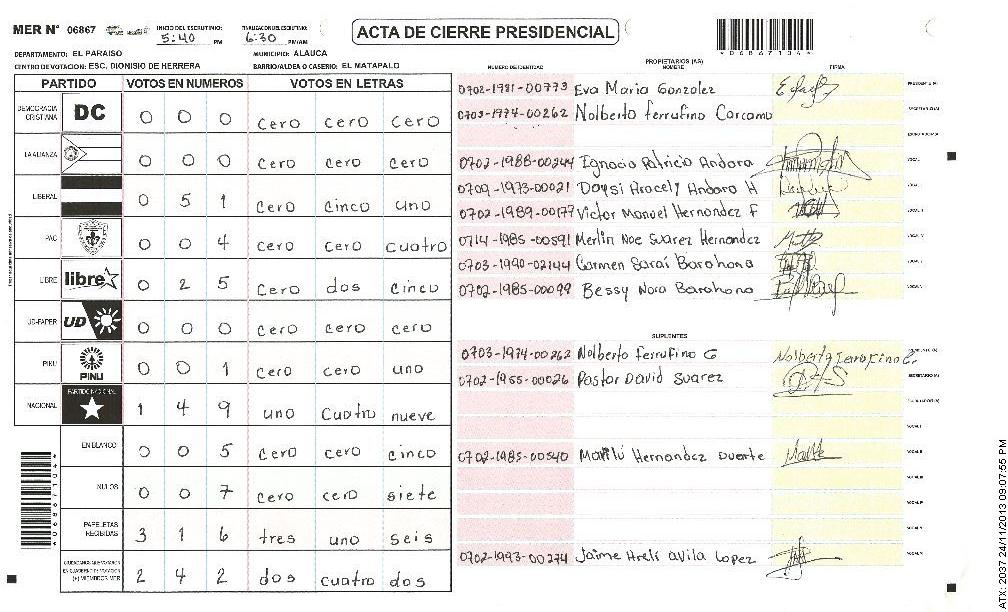 MER N° 06867
INICIO DEL ESCRUTINIO:
5:40 PM
FINALIZACION DEL ESCRUTINIO:
6:30 PM/AM
ACTA DE CIERRE PRESIDENCIAL
*06867104*
DEPARTAMENTO: EL PARAISO
MUNICIPIO: ALAUCA
CENTRO DE VOTACION: ESC. DIONISIO DE HERRERA
BARRIO/ALDEA O CASERIO: EL MATAPALO
PARTIDO VOTOS EN NUMEROS VOTOS EN LETRAS
DEMOCRACIA CRISTIANA DC 0 0 0 cero cero cero
LA ALIANZA 0 0 0 cero cero cero
LIBERAL 0 5 1 cero cinco uno
PAC 0 0 4 cero cero cuatro
LIBRE libre 0 2 5 cero dos cinco
UD-FAPER UD 0 0 0 cero cero cero
PINU PINU 0 0 1 cero cero uno
NACIONAL PARTIDO NACIONAL 1 4 9 uno cuatro nueve
EN BLANCO 0 0 5 cero cero cinco
NULOS 0 0 7 cero cero siete
PAPELETAS RECIBIDAS 3 1 6 tres uno seis
CIUDADANOS QUE VOTARON EN CUADERNO DE VOTACION (+) MIEMBROS MER 2 4 2 dos cuatro dos
*06867104*
PROPIETARIOS (AS)
NUMERO DE IDENTIDAD NOMBRE FIRMA
0702-1981-00773 Eva Maria Gonzalez PRESIDENTE (A)
0703-1974-00262 Nolberto Ferrufino Carcamo SECRETARIO (A)
ESCRUTADOR (A)
0702-1988-00244 Ignacio Patricio Andara VOCAL I
0709-1973-00021 Daysi Aracely Andara H VOCAL II
0702-1989-00177 Victor Manuel Hernandez F VOCAL III
0714-1985-00591 Merlin Noe Suarez Hernandez VOCAL IV
0703-1990-02144 Carmen Saraí Barahona VOCAL V
0702-1985-00099 Bessy Nora Barahona VOCAL VI
SUPLENTES
0703-1974-00262 Nolberto Ferrufino C Nolberto Ferrufino C. PRESIDENTE (A)
0702-1955-00026 Pastor David Suarez SECRETARIO (A)
ESCRUTADOR (A)
VOCAL I
0702-1985-00540 Marilú Hernandez Duarte VOCAL II
VOCAL III
VOCAL IV
VOCAL V
0702-1993-00274 Jaime Areli avila Lopez VOCAL VI
ATX: 2037 24/11/2013 09:07:55 PM